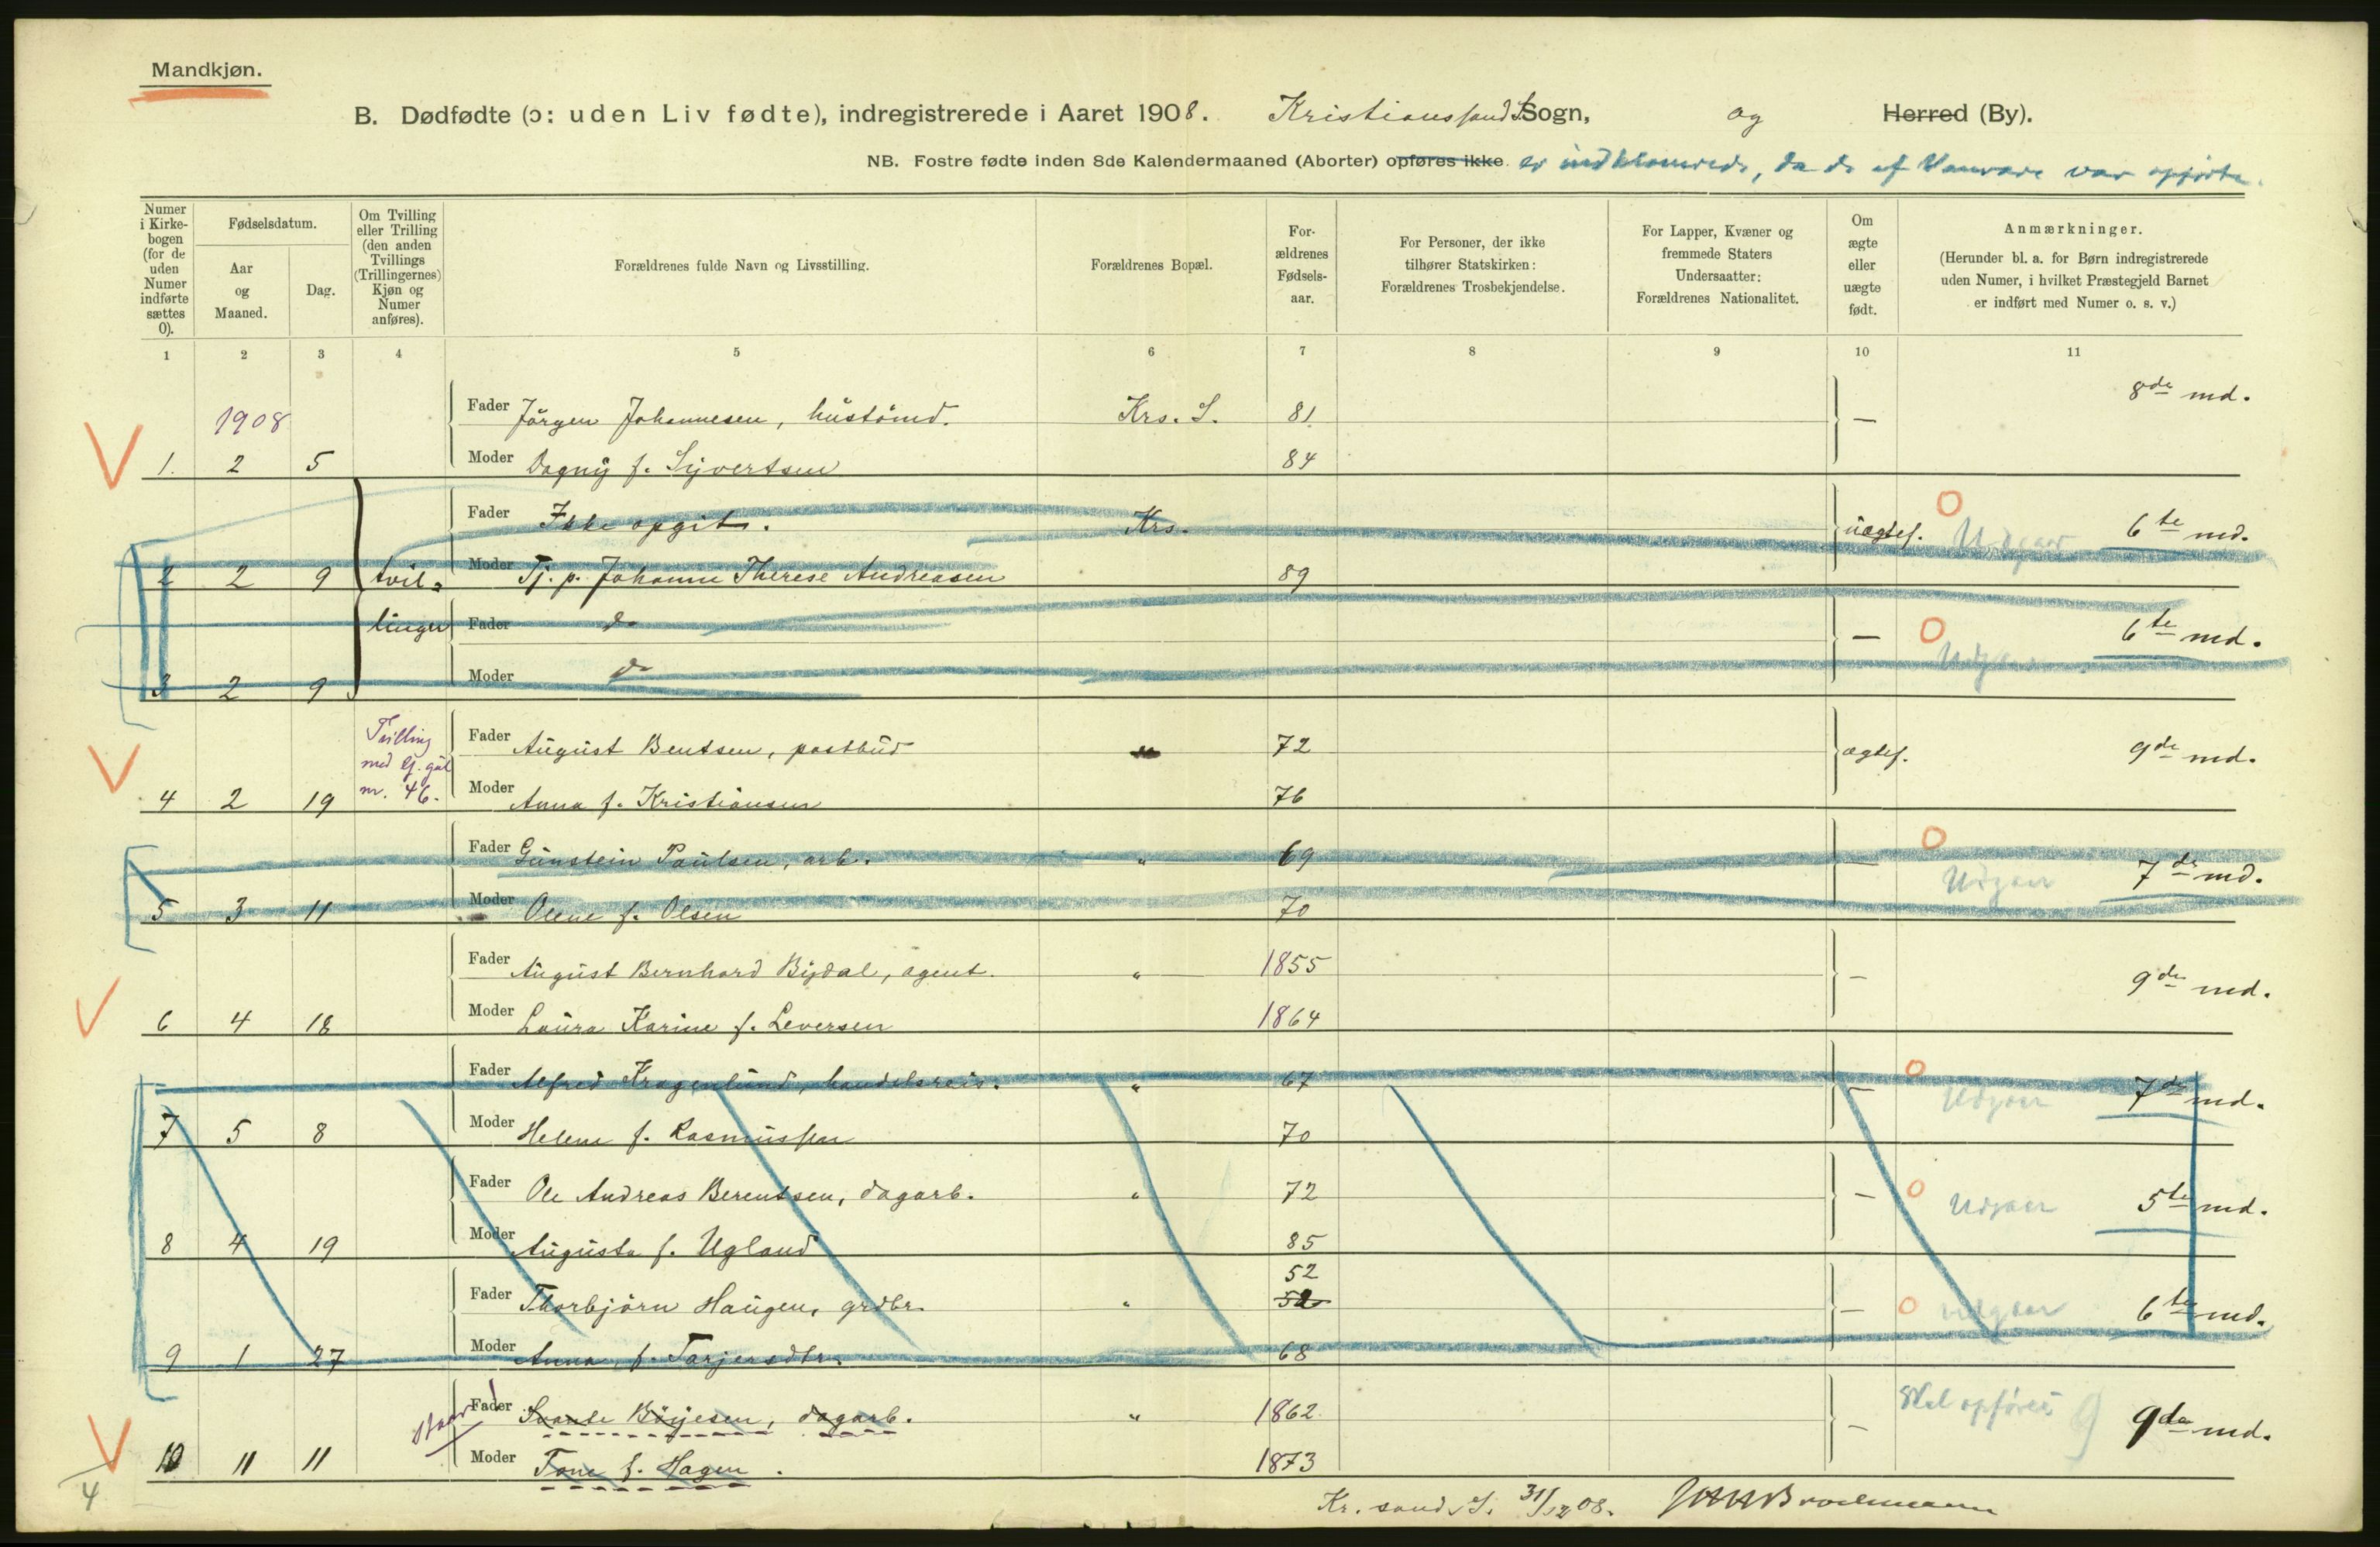 Mandkjøn.
B. Dødfødte (ɔ: uden Liv fødte), indregistrerede i Aaret 1908. Kristianssand S. Sogn, og Herred (By).
NB. Fostre fødte inden 8de Kalendermaaned (Aborter) opføres ikke er indkomne, da de af Vanvare var opførte.
Numer i Kirkebogen (for de uden Numer indførte sættes 0).
Fødselsdatum.
Aar og Maaned.
Dag.
Om Tvilling eller Trilling (den anden Tvillings (Trillingernes) Kjøn og Numer anføres).
Forældrenes fulde Navn og Livsstilling.
Forældrenes Bopæl.
Forældrenes Fødselsaar.
For Personer, der ikke tilhører Statskirken: Forældrenes Trosbekjendelse.
For Lapper, Kvæner og fremmede Staters Undersaatter: Forældrenes Nationalitet.
Om ægte eller uægte født.
Anmærkninger.
(Herunder bl. a. for Børn indregistrerede uden Numer, i hvilket Præstegjeld Barnet er indført med Numer o. s. v.)
1 2 3 4 5 6 7 8 9 10 11
1908 Fader Jörgen Johannesen, hustömd. Krs. S. 81. — 8de md.
1. 2 5 Moder Dagny f. Syvertsen 84
Fader Ikke opgit. Krs. uægtef. Udgaar 6te md.
2 2 9 tvil- Moder Tj. p. Johanne Therese Andreasen 89
linger Fader do — Udgaar 6te md.
3 2 9 Moder do
Tvilling med lev. nr. 46. Fader August Bentsen, postbud " 72 ægtef. 9de md.
4 2 19 Moder Anna f. Kristiansen 76
Fader Gunstein Paulsen, arb. " 69 — Udgaar 7de md.
5 3 11 Moder Olene f. Olsen 70
Fader August Bernhard Bydal, agent. " 1855 — 9de md.
6 4 18 Moder Laura Karine f. Leversen 1864
Fader Alfred Kragenlund, handelsreis. " 67 — Udgaar 7de md.
7 5 8 Moder Helene f. Rasmussen 70
Fader Ole Andreas Berentsen, dagarb. " 72 — Udgaar 5te md.
8 4 19 Moder Augusta f. Ugland 85
52
Fader Thorbjörn Haugen, grdbr. " 52 — Udgaar 6te md.
9 1 27 Moder Anna, f. Tarjersdtr. 68
Fader Svante Börjesen, dagarb. " 1862. — Skal opføres 9 9de md.
10 11 11 Moder Tone f. Hagen. 1873
4
Kr.sand S. 31/12 08.